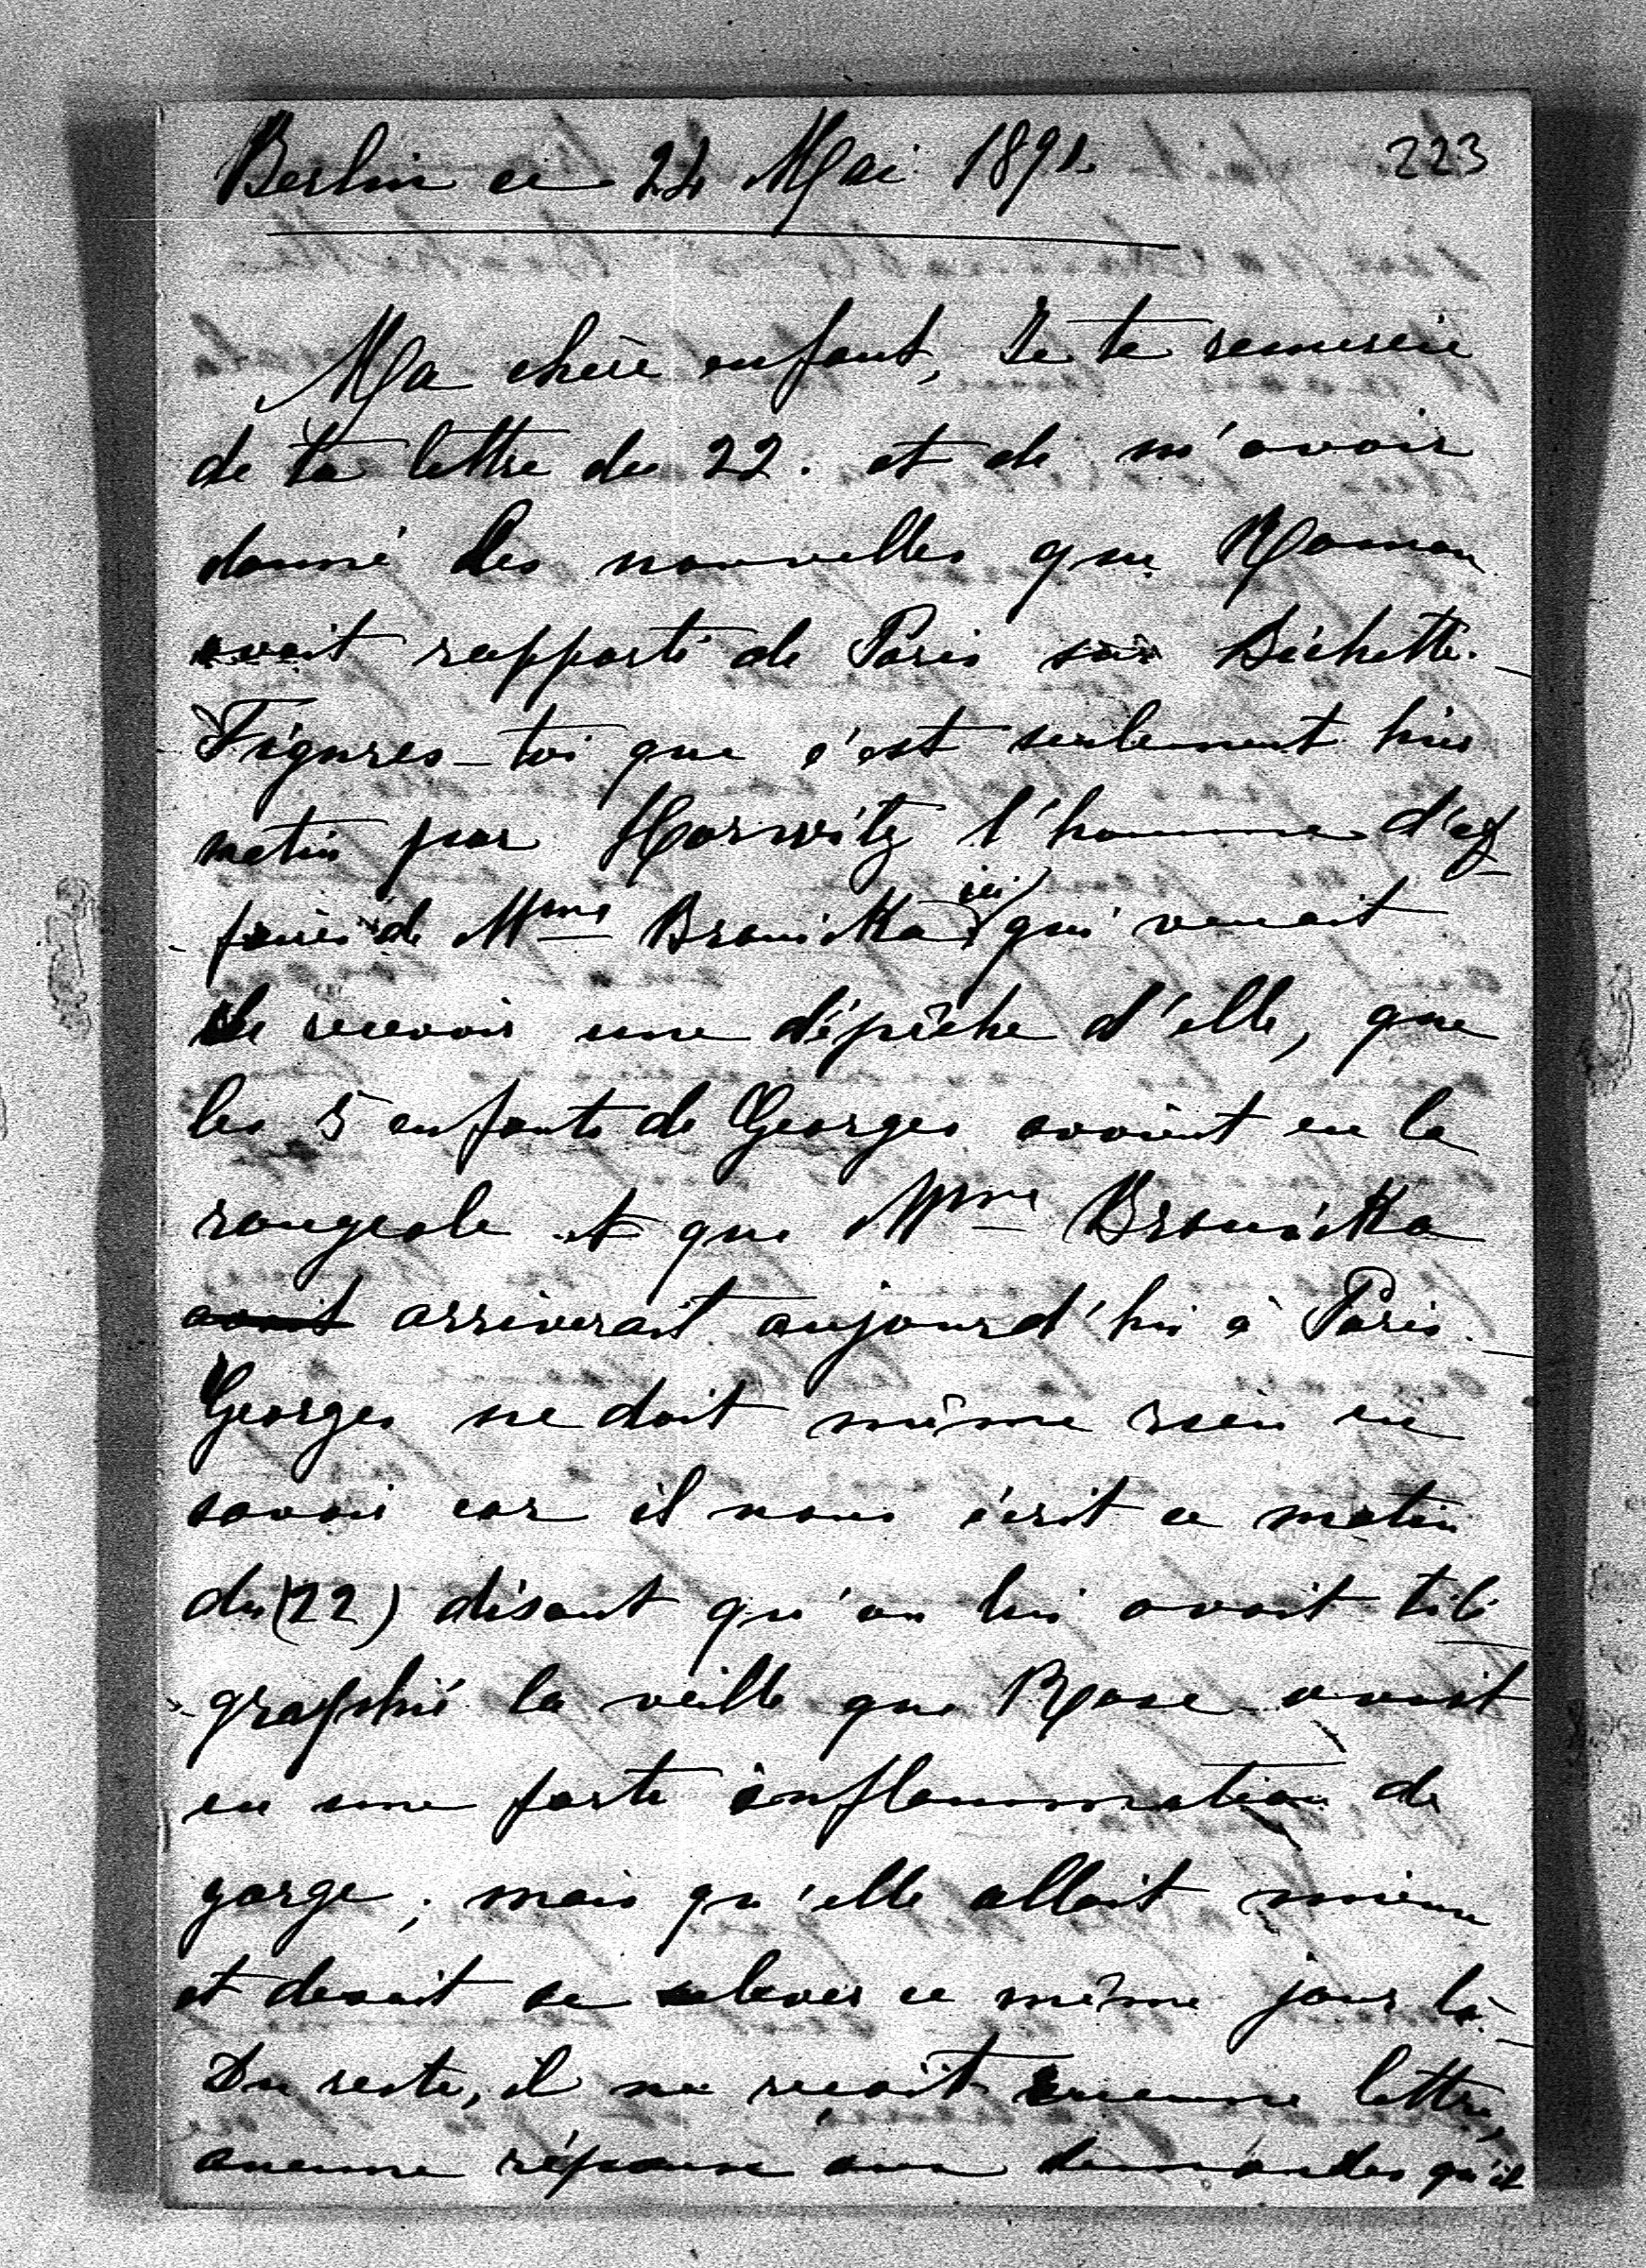 Berlin ce 24 Mai 1891.
223
Ma chère enfant, Je te remercie
de ta lettre du 22. et de m'avoir
donné les nouvelles que Roman
avait rapporté de Paris sur Bichette.
Figures-toi que c'est seulement hier
matin par Horwitz l'homme d'af-
faires de Mme Branicka ici qui venait
de recevoir une dépêche d'elle, que
les 5 enfants de Georges avaient eu la
rougeole et que Mme Branicka
avait arriverait aujourd'hui à Paris.
Georges ne doit même rien en
savoir car il nous écrit ce matin
du (22) disant qu'on lui avait télé-
graphié la veille que Rose avait
eu une forte inflammation de
gorge; mais qu'elle allait mieux
et devait se relever ce même jour là.
Du reste, il ne reçoit aucune lettre,
aucune réponse aux demandes qu'il